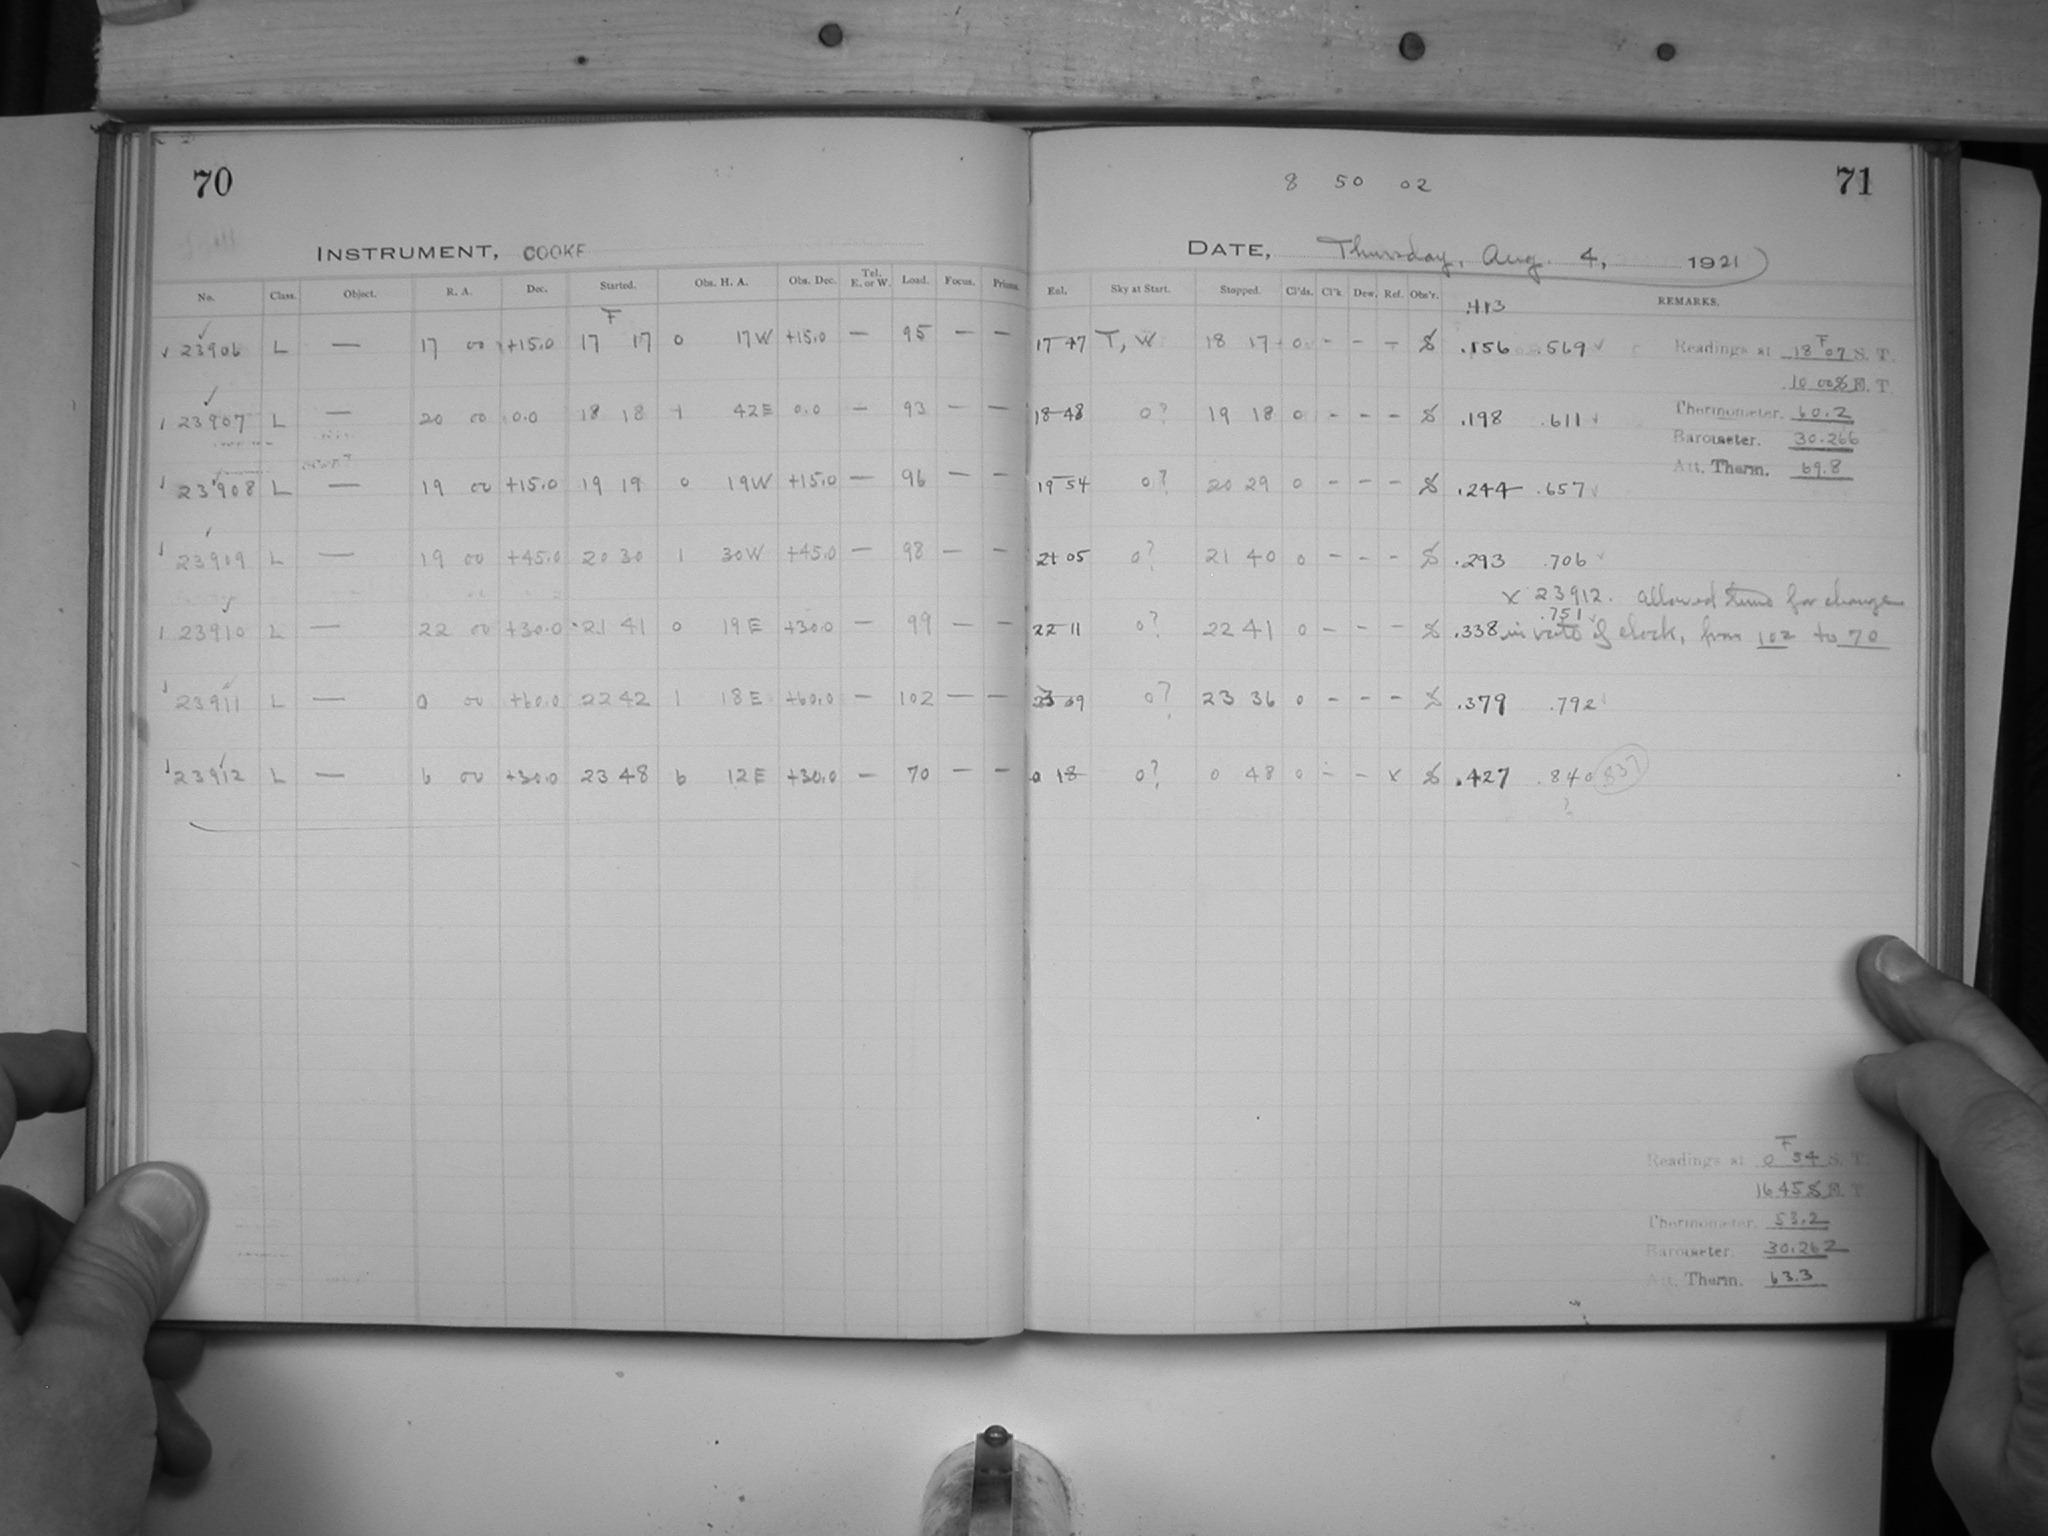 70
INSTRUMENT, COOKE
No. Class. Object. R. A. Dec. Started. Obs. H. A. Obs. Dec. Tel. E. or W. Load. Focus. Prisms.
F
23906 L — 17 00 +15.0 17 17 0 17W +15.0 — 95 — —
23907 L — 20 00 0.0 18 18 1 42E 0.0 — 93 — —
23908 L — 19 00 +15.0 19 19 0 19W +15.0 — 96 — —
23909 L — 19 00 +45.0 20 30 1 30W +45.0 — 98 — —
23910 L — 22 00 +30.0 21 41 0 19E +30.0 — 99 — —
23911 L — 0 00 +60.0 22 42 1 18E +60.0 — 102 — —
23912 L — 6 00 +30.0 23 48 6 12E +30.0 — 70 — —
8 50 02
71
DATE, Thursday, Aug. 4, 1921
Sky at Start. Stopped. Cl'ds. Cl'k. Dew. Ref. Obs'r. REMARKS.
.413
17 47 T, W 18 17 0 - - - .156 .569
18 48 0? 19 18 0 - - - .198 .611
19 54 0? 20 29 0 - - - .244 .657
21 05 0? 21 40 0 - - - .293 .706
x 23912. Allowed time for change
.751
22 11 0? 22 41 0 - - - .338 in rate of clock, from 102 to 70
23 09 0? 23 36 0 - - - .379 .792
0 18 0? 0 48 0 - - x .427 .840 837
?
Readings at 18 F 07 S. T.
10 00 M. T.
Thermometer. 60.2
Barometer. 30.266
Att. Therm. 69.8
Readings at 0 F 54 S. T.
16 45 M. T.
Thermometer. 53.2
Barometer. 30.262
Att. Therm. 63.3